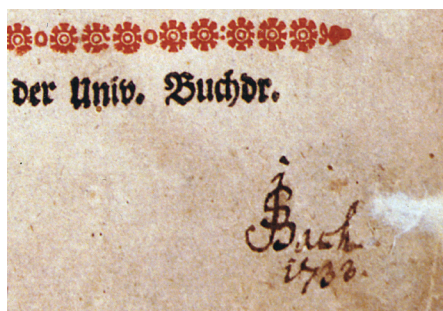 der Univ. Buchdr.
JSBach
1733.